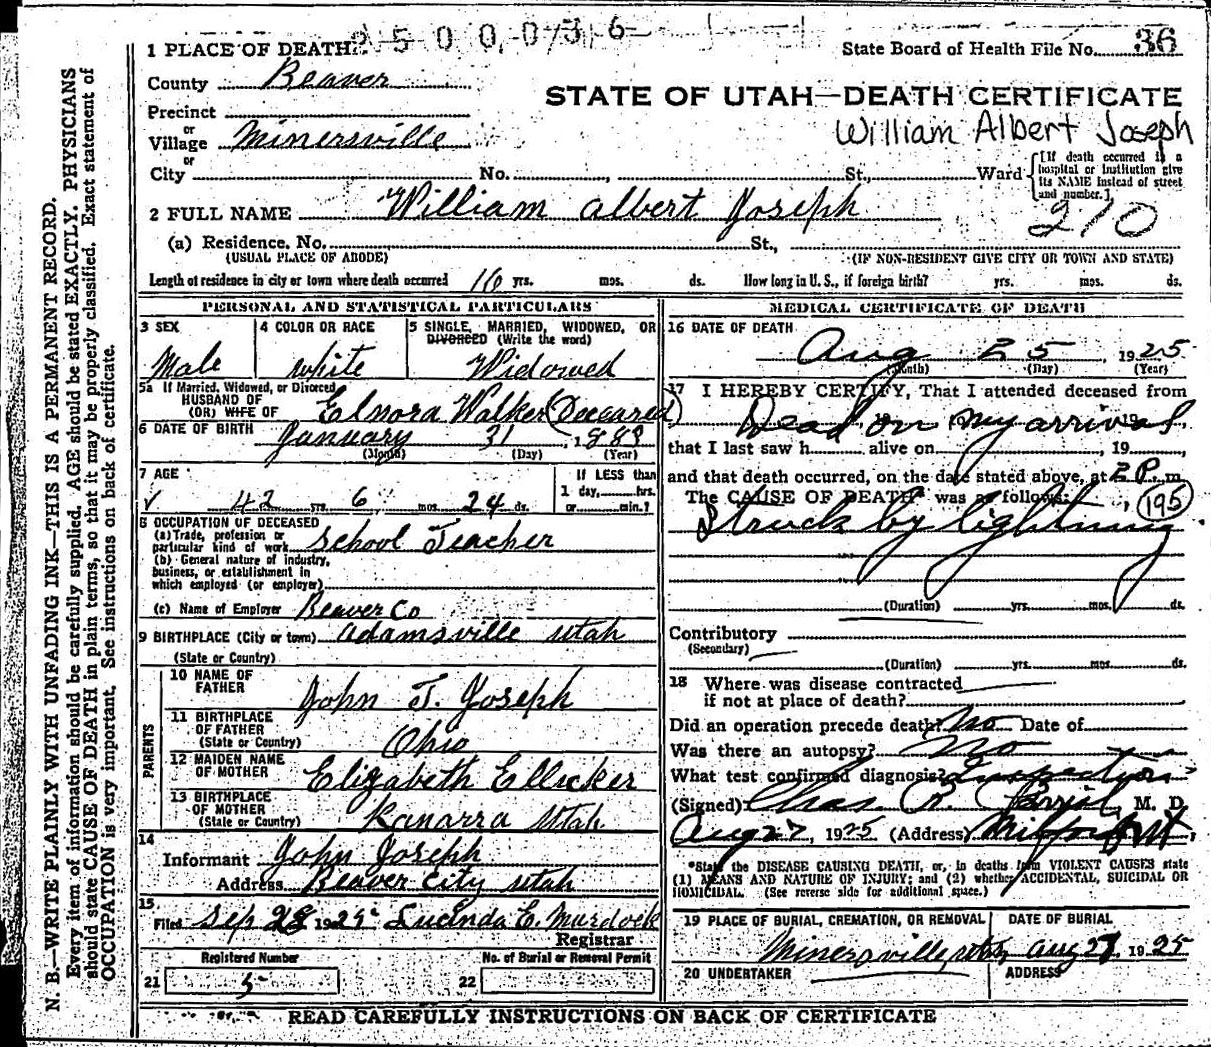 2500036
1 PLACE OF DEATH: State Board of Health File No. 36
County Beaver
STATE OF UTAH—DEATH CERTIFICATE
Precinct
or
Village Minersville
William Albert Joseph
or
City No. , St., Ward [If death occurred in a hospital or institution give its NAME instead of street and number.]
2 FULL NAME William Albert Joseph
210
(a) Residence. No. St.,
(USUAL PLACE OF ABODE) (IF NON-RESIDENT GIVE CITY OR TOWN AND STATE)
Length of residence in city or town where death occurred 16 yrs. mos. ds. How long in U. S., if foreign birth? yrs. mos. ds.
PERSONAL AND STATISTICAL PARTICULARS
3 SEX
Male
4 COLOR OR RACE
white
5 SINGLE, MARRIED, WIDOWED, OR
DIVORCED (Write the word)
Widowed
5a If Married, Widowed, or Divorced
HUSBAND OF
(OR) WIFE OF Elnora Walker (Deceased)
6 DATE OF BIRTH January 31, 1883
(Month) (Day) (Year)
7 AGE
42 yrs. 6 mos. 24 ds.
If LESS than
1 day, hrs.
or min.?
8 OCCUPATION OF DECEASED
(a) Trade, profession or
particular kind of work School Teacher
(b) General nature of industry,
business, or establishment in
which employed (or employer)
(c) Name of Employer Beaver Co
9 BIRTHPLACE (City or town) Adamsville Utah
(State or Country)
PARENTS
10 NAME OF
FATHER John T. Joseph
11 BIRTHPLACE
OF FATHER
(State or Country) Ohio
12 MAIDEN NAME
OF MOTHER Elizabeth Ellicker
13 BIRTHPLACE
OF MOTHER
(State or Country) Kanarra Utah
14
Informant John Joseph
Address Beaver City Utah
15
Filed Sep 28 1925 Lucinda E. Murdock
Registrar
Registered Number
21 5
No. of Burial or Removal Permit
22
MEDICAL CERTIFICATE OF DEATH
16 DATE OF DEATH
Aug 25, 1925
(Month) (Day) (Year)
17 I HEREBY CERTIFY, That I attended deceased from
Dead on my arrival 19
that I last saw h alive on , 19 ,
and that death occurred, on the date stated above, at 2 P. m.
The CAUSE OF DEATH* was as follows: 195
Struck by lightning
(Duration) yrs. mos. ds.
Contributory
(Secondary)
(Duration) yrs. mos. ds.
18 Where was disease contracted
if not at place of death?
Did an operation precede death? No Date of
Was there an autopsy? No
What test confirmed diagnosis? Inspection
(Signed) Chas R. M. D.
Aug 27, 1925 (Address) Milford Ut
*State the DISEASE CAUSING DEATH, or, in deaths from VIOLENT CAUSES state
(1) MEANS AND NATURE OF INJURY; and (2) whether ACCIDENTAL, SUICIDAL OR
HOMICIDAL. (See reverse side for additional space.)
19 PLACE OF BURIAL, CREMATION, OR REMOVAL
Minersville, Utah
DATE OF BURIAL
Aug 27 1925
20 UNDERTAKER ADDRESS
READ CAREFULLY INSTRUCTIONS ON BACK OF CERTIFICATE
N. B.—WRITE PLAINLY WITH UNFADING INK—THIS IS A PERMANENT RECORD.
Every item of information should be carefully supplied. AGE should be stated EXACTLY. PHYSICIANS
should state CAUSE OF DEATH in plain terms, so that it may be properly classified. Exact statement of
OCCUPATION is very important. See instructions on back of certificate.